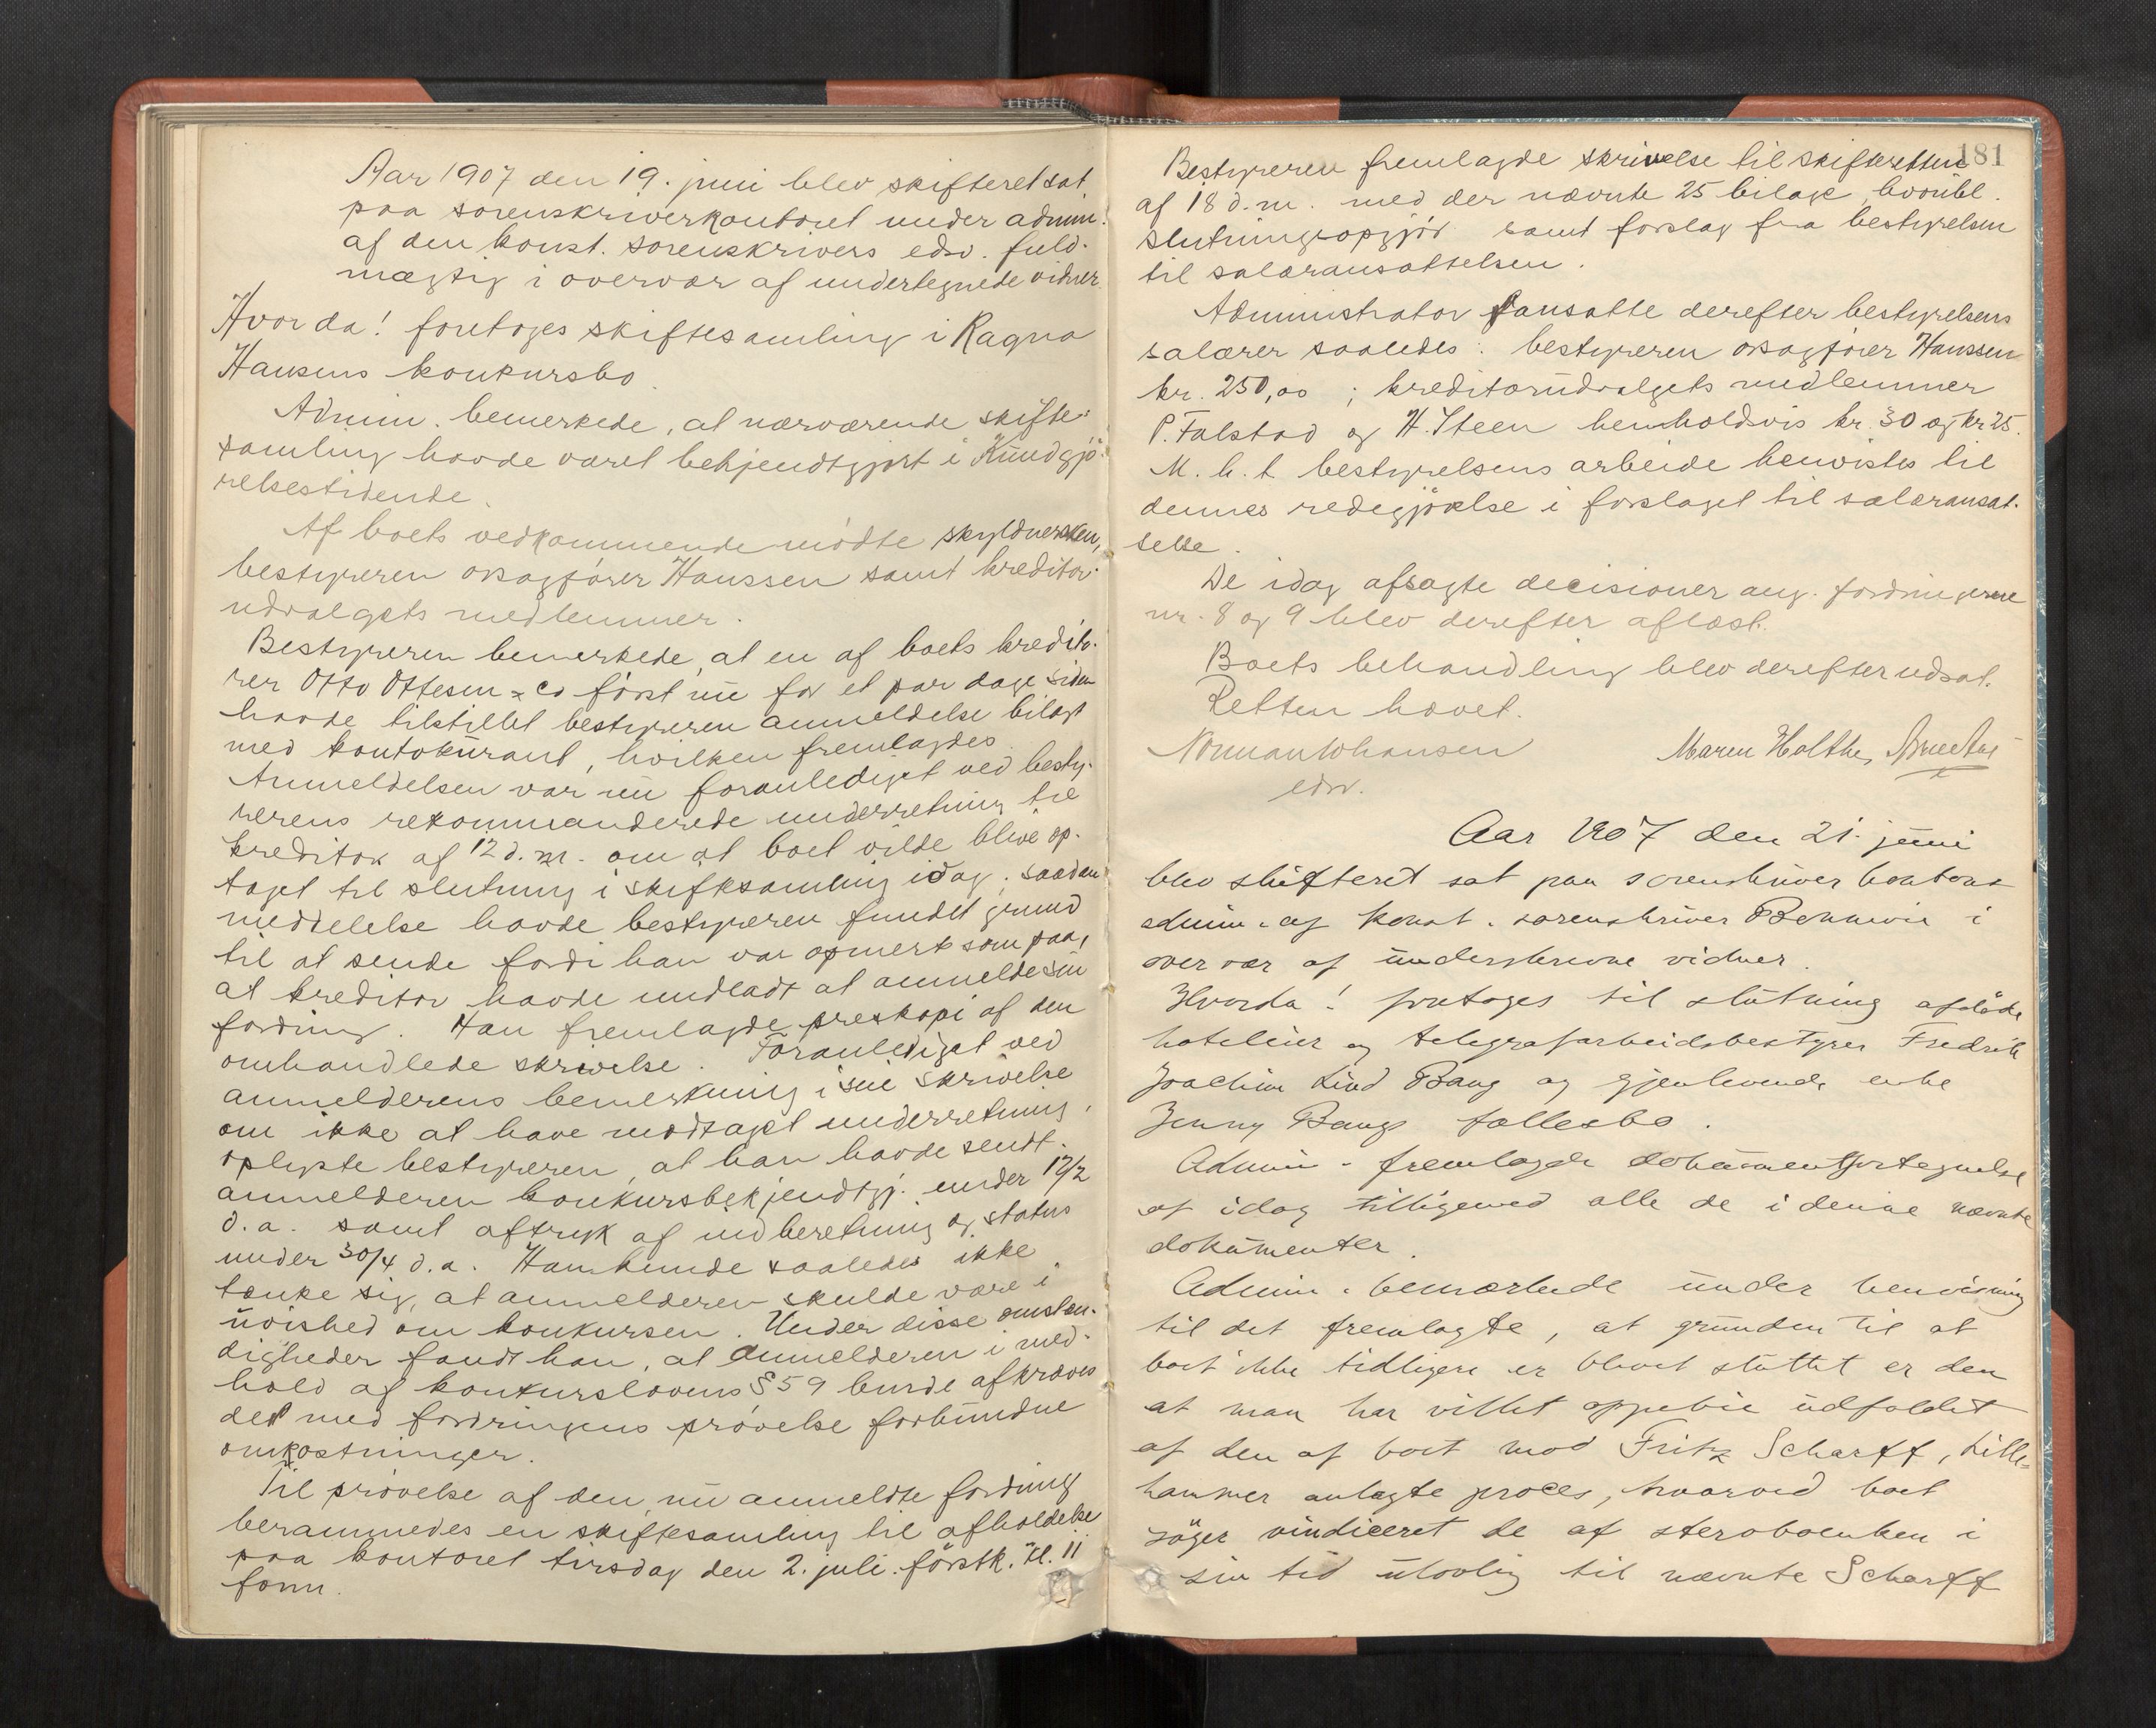 Aar 1907 den 19. juni blev skifteret sat
paa sorenskriverkontoret under admin.
af den konst. sorenskrivers edsv. fuld-
mægtig i overvær af undertegnede vidner.
Hvorda! foretoges skiftesamling i Ragna
Hansens konkursbo.
Admin. bemerkede, at nærværende skifte-
samling havde været bekjendtgjort i Kundgjö-
relsestidende.
Af boets vedkommende mödte skyldnersken,
bestyreren orsagförer Hanssen samt kreditor-
udvalgets medlemmer.
Bestyreren bemerkede, at en af boets kredito-
rer Otto Ottesen & Co först nu for et par dage siden
havde tilstillet bestyreren anmeldelse bilagt
med kontokurant, hvilken fremlagdes.
Anmeldelsen var nu foranlediget ved besty-
rerens rekommanderede underretning til
kreditor af 12 d.m. om at boet vilde blive op-
taget til slutning i skiftesamling idag; saadan
meddelelse havde bestyreren fundet grund
til at sende fordi han var opmerksom paa,
at kreditor havde undladt at anmelde sin
fordring. Han fremlagde preskopi af den
omhandlede skrivelse. Foranlediget ved
anmelderens bemerkning i sin skrivelse
om ikke at have modtaget underretning,
oplyste bestyreren, at han havde sendt
anmelderen konkursbekjendtgj. under 12/2
d.a. samt aftryk af indberetning og status
under 30/4 d.a. Han kunde saaledes ikke
tænke sig, at anmelderen skulde være i
uvished om konkursen. Under disse omstæn-
digheder fandt han, at anmelderen i med-
hold af konkurslovens § 59 burde afkræves
det med fordringens prövelse forbundne
omkostninger.
Til prövelse af den nu anmeldte fordring
berammedes en skiftesamling til afholdelse
paa kontoret tirsdag den 2. juli förstk. kl. 11
form.
181
Bestyreren fremlagde skrivelse til skifteretten
af 18 d.m. med der nævnte 25 bilage, hvoribl.
slutningsopgjör samt forslag fra bestyrelsen
til salæransættelsen.
Administrator ansatte derefter bestyrelsens
salærer saaledes: bestyreren orsagförer Hanssen
kr. 250,00; kreditorudvalgets medlemmer
P. Falstad og H. Steen henholdsvis kr. 30 og kr 25.
M.h.t. bestyrelsens arbeide henvistes til
dennes redegjörelse i forslaget til salæransæt-
telse.
De idag afsagte decisioner ang. fordringerne
nr. 8 og 9 blev derefter aflæst.
Boets behandling blev derefter udsat.
Retten hævet.
Norman Johansen Maren Holthe,
edsv.
Aar 1907 den 21. juni
blev skifteret sat paa sorenskriver kontoret
admin. af konst. sorenskriver Bennevie i
overvær af underskrevne vidner.
Hvorda! foretoges til slutning afdöde
hoteleier og telegrafarbeidsbestyrer Fredrik
Joachim Lind Bang og gjenlevende enke
Jenny Bangs fællesbo.
Admin. fremlagde dokumentfortegnelse
af idag tilligemed alle de i denne nævnte
dokumenter.
Admin. bemærkede under henvisning
til det fremlagte, at grunden til at
boet ikke tidligere er blevet sluttet er den
at man har villet oppebie udfaldet
af den af boet mod Fritz Scharff, Lille-
hammer anlagte proces, hvorved boet
söger vindiceret de af sterboenken i
sin tid ulovlig til nævnte Scharff